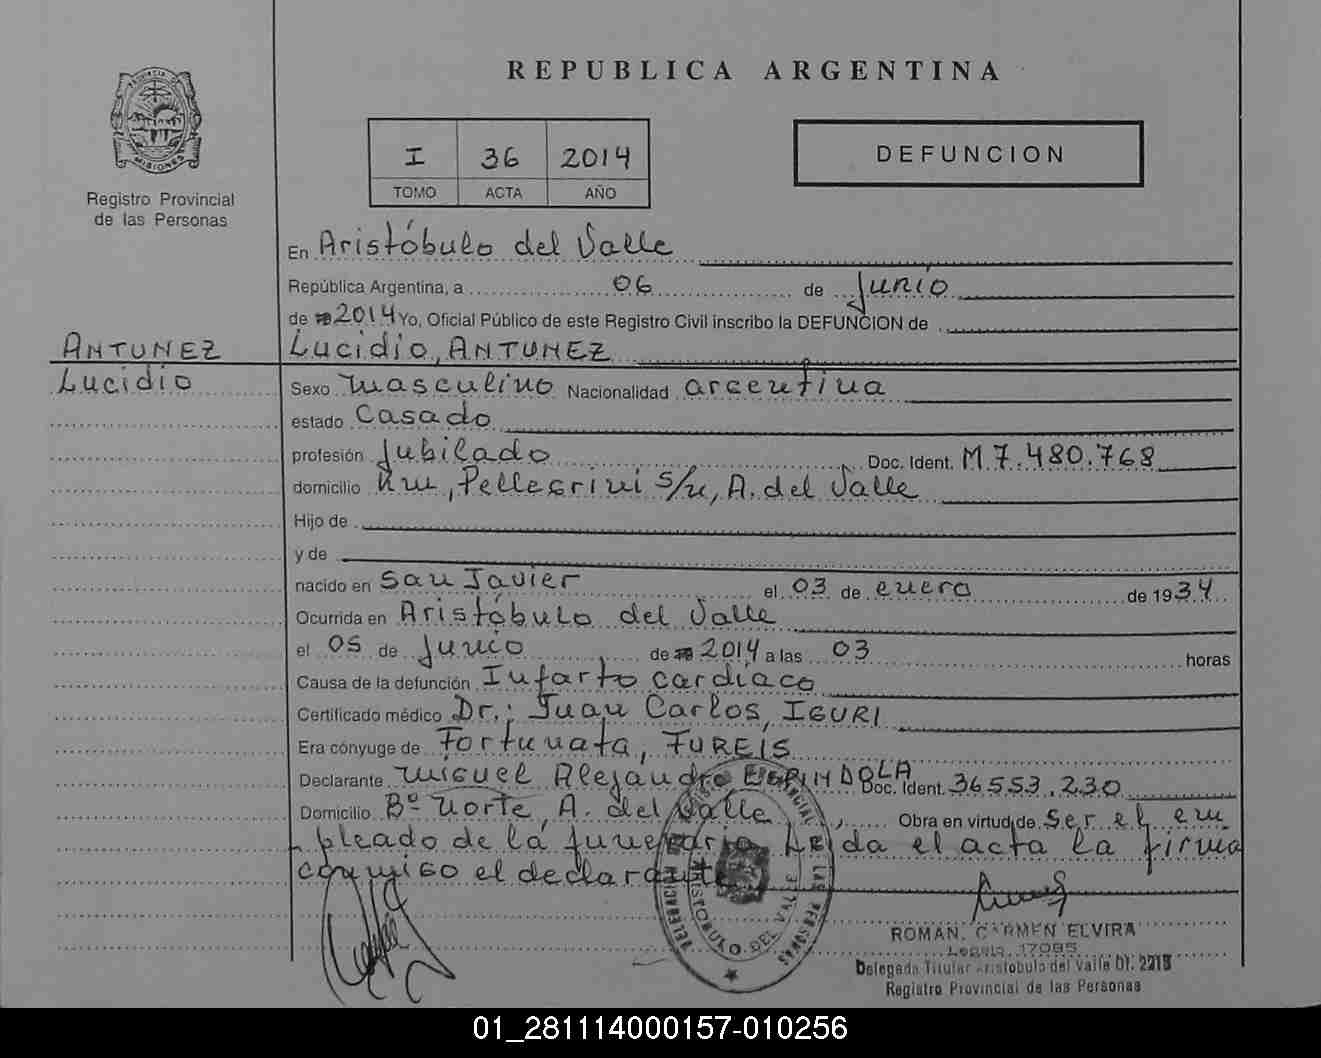 REPUBLICA ARGENTINA
PROVINCIA DE MISIONES
Registro Provincial
de las Personas
I 36 2014
TOMO ACTA AÑO
DEFUNCION
En Aristóbulo del Valle
República Argentina, a 06 de Junio
de 2014 Yo, Oficial Público de este Registro Civil inscribo la DEFUNCION de
ANTUNEZ Lucidio, ANTUNEZ
Lucidio Sexo masculino Nacionalidad argentina
estado Casado
profesión Jubilado Doc. Ident. M 7.480.768
domicilio Km, Pellegrini s/n, A. del Valle
Hijo de
y de
nacido en San Javier el 03 de enero de 1934
Ocurrida en Aristóbulo del Valle
el 05 de Junio de 2014 a las 03 horas
Causa de la defunción Infarto cardíaco
Certificado médico Dr.: Juan Carlos, IGURI
Era cónyuge de Fortunata, FUREIS
Declarante Miguel Alejandro ESPINDOLA Doc. Ident. 36553.230
Domicilio Bº Norte, A. del Valle, Obra en virtud de ser el em
pleado de la funeraria Leida el acta la firma
conmigo el declarante
DELEGACION ARISTOBULO DEL VALLE
LAS PERSONAS
ROMAN, CARMEN ELVIRA
Legajo 17085
Delegada Titular Aristobulo del Valle Of. 2215
Registro Provincial de las Personas
01_281114000157-010256